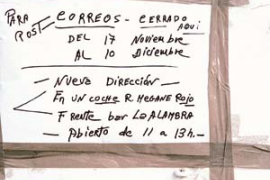 PARA POST - CORREOS - CERRADO AQUI
DEL 17 Noviembre
AL 10 Diciembre
- NUEVA DIRECCIÓN -
EN UN COCHE R. MEGANE ROJO
FRENTE bar LA ALAMBRA
- Abierto de 11 a 13h. -